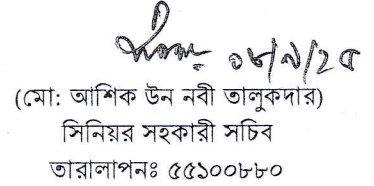 ০৮/৯/২৫
(মো: আশিক উন নবী তালুকদার)
সিনিয়র সহকারী সচিব
তারালাপনঃ ৫৫১০০৮৮০